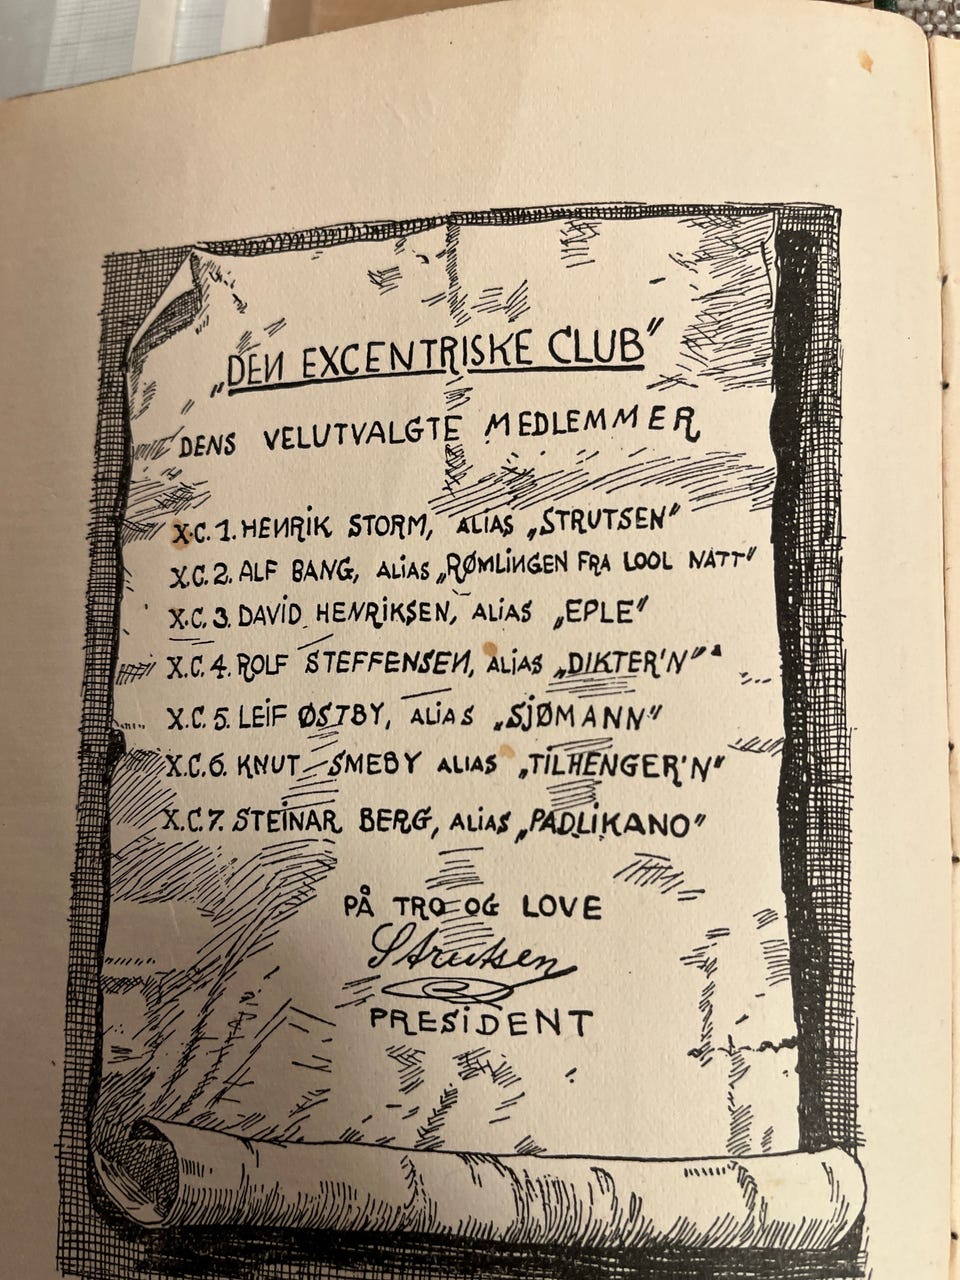 „DEN EXCENTRISKE CLUB"
DENS VELUTVALGTE MEDLEMMER
X.C. 1. HENRIK STORM, ALIAS „STRUTSEN"
X.C. 2. ALF BANG, ALIAS „RØMLINGEN FRA LOOL NATT"
X.C. 3. DAVID HENRIKSEN, ALIAS „EPLE"
X.C. 4. ROLF STEFFENSEN, ALIAS „DIKTER'N"
X.C. 5. LEIF ØSTBY, ALIAS „SJØMANN"
X.C. 6. KNUT SMEBY ALIAS „TILHENGER'N"
X.C. 7. STEINAR BERG, ALIAS „PADLIKANO"
PÅ TRO OG LOVE
Strutsen
PRESIDENT